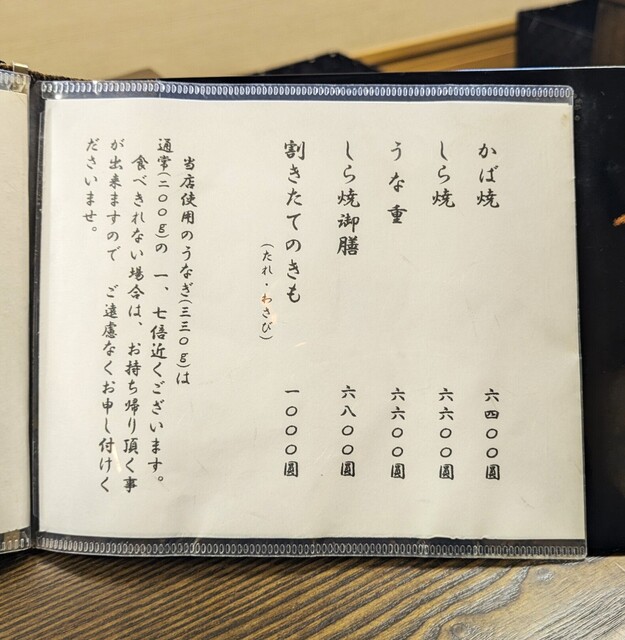 かば焼 六四〇〇圓
しら焼 六六〇〇圓
うな重 六六〇〇圓
しら焼御膳 六八〇〇圓
割きたてのきも 一〇〇〇圓
(たれ・わさび)
当店使用のうなぎ(三三〇g)は
通常(二〇〇g)の 一、七倍近くございます。
食べきれない場合は、お持ち帰り頂く事
が出来ますので ご遠慮なくお申し付けく
ださいませ。